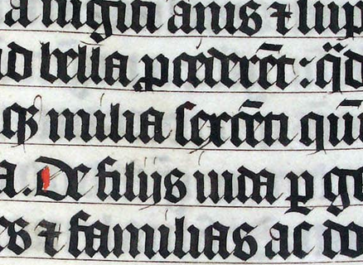 a uigin annis ⁊ sup
ad bella ꝓcederēt : q̄d
qꝫ milia sexcēti qui
a. De filijs iuda p ge
es ⁊ familias ac do